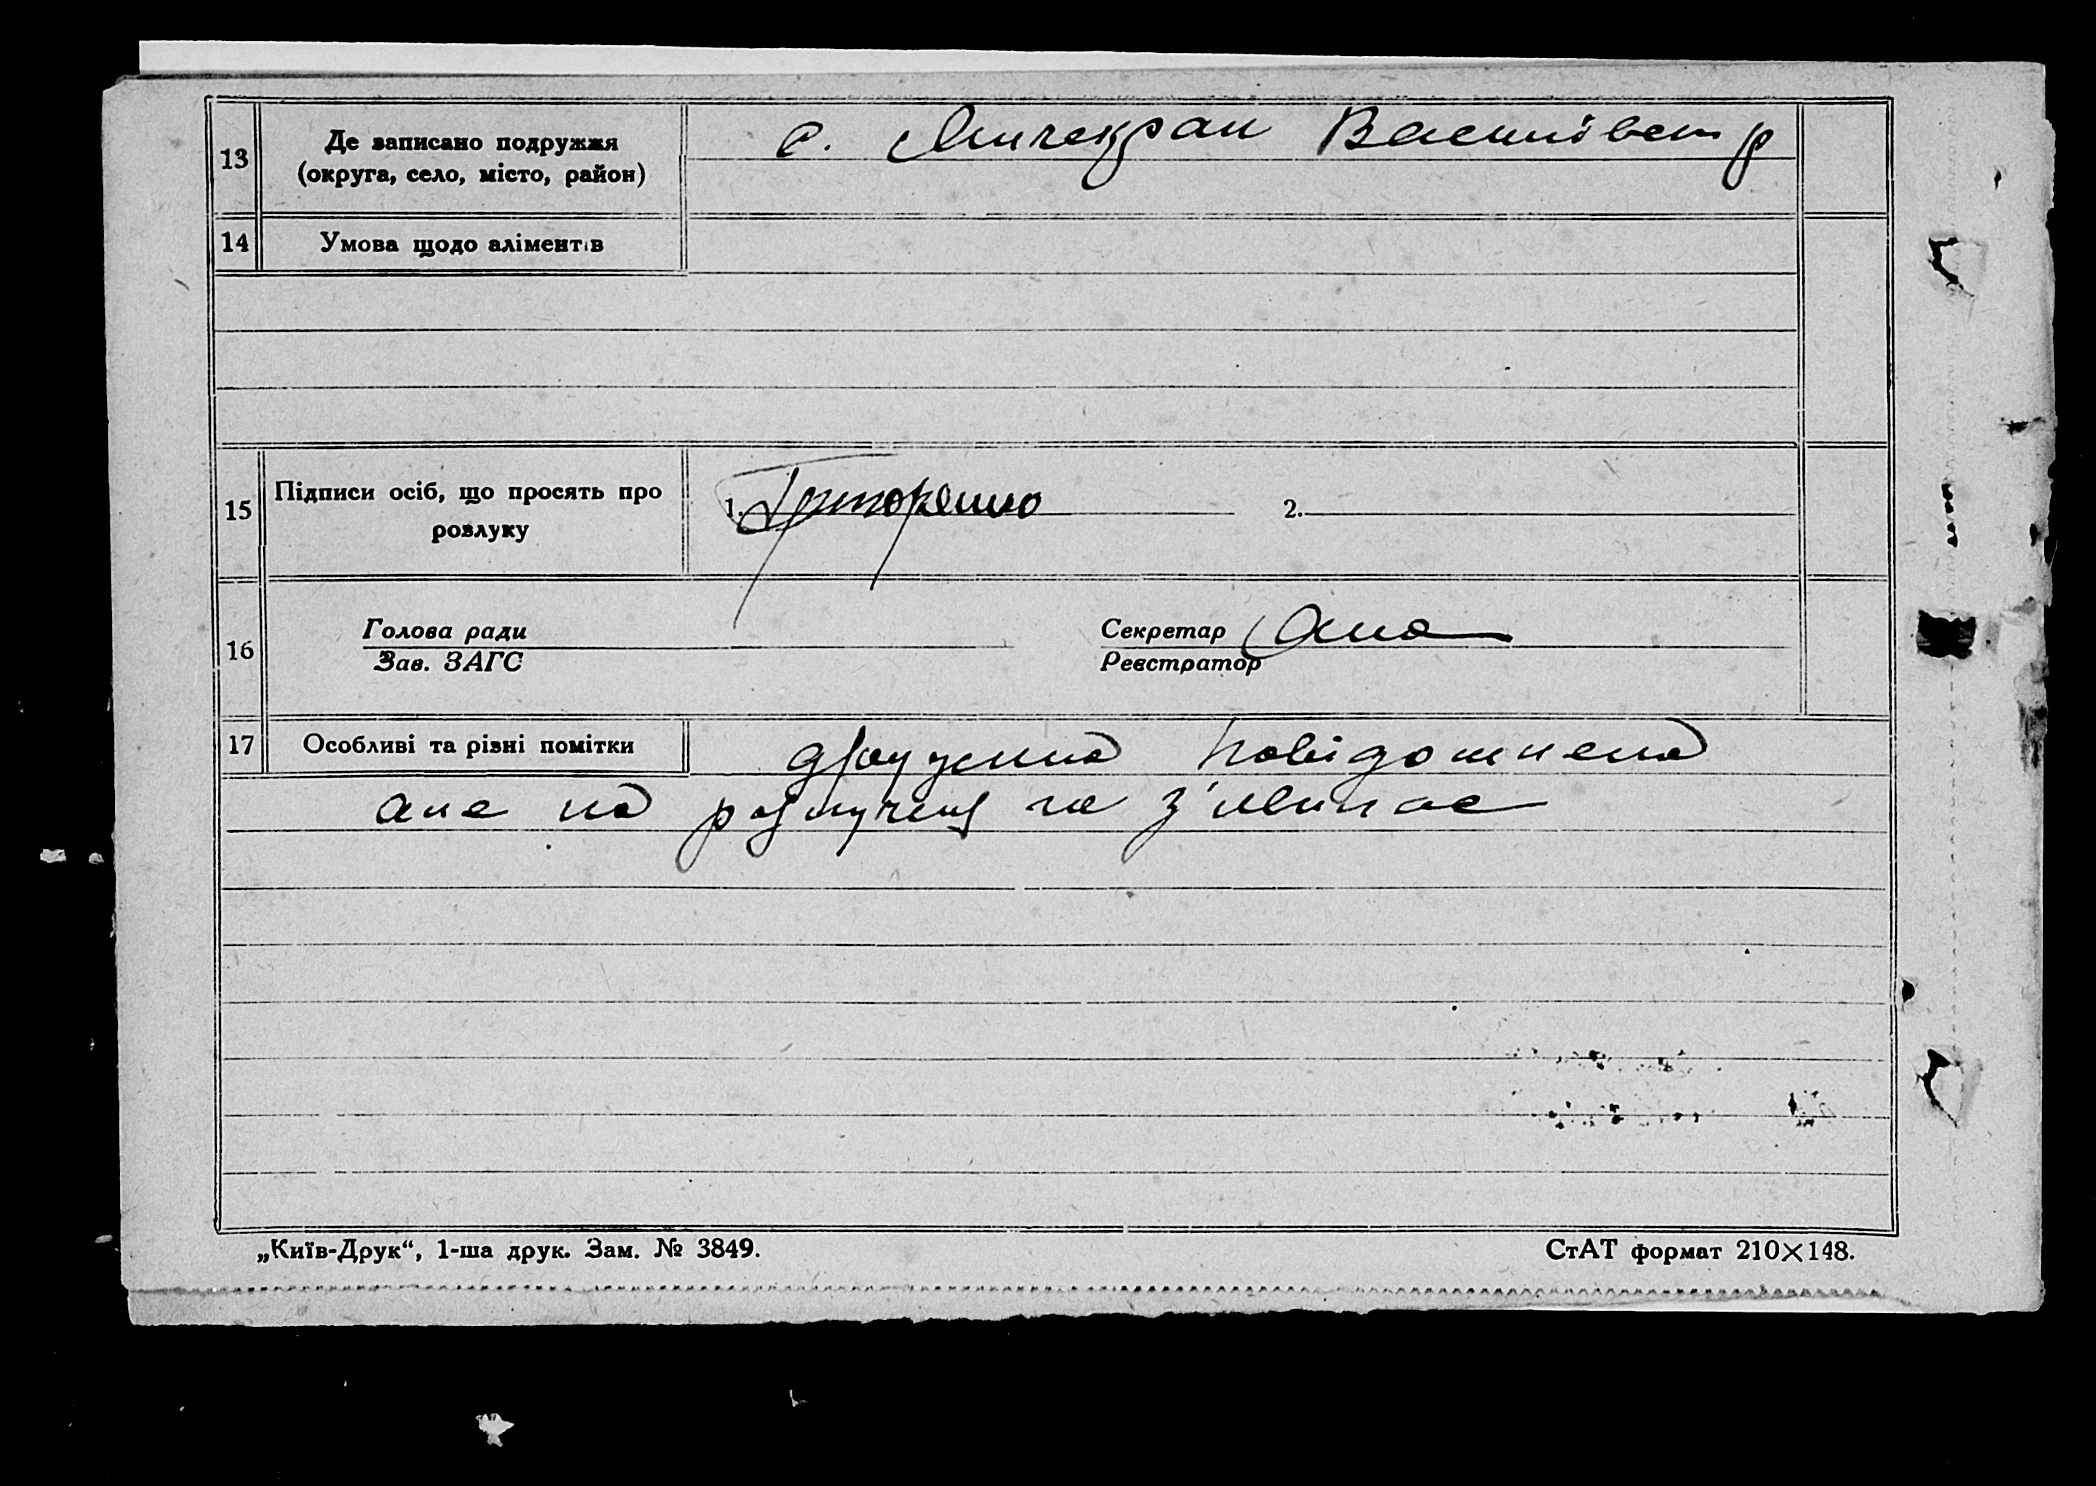 13 Де записано подружжя
(округа, село, місто, район)
с. Янчекрак Василівськ р
14 Умова щодо аліментів
15 Підписи осіб, що просять про
розлуку
1. Григоренко 2.
16 Голова ради
Зав. ЗАГС
Секретар
Реєстратор
17 Особливі та різні помітки дружина повідомлена
але на розлучення не з'явилася
„Київ-Друк“, 1-ша друк. Зам. № 3849. СтАТ формат 210×148.